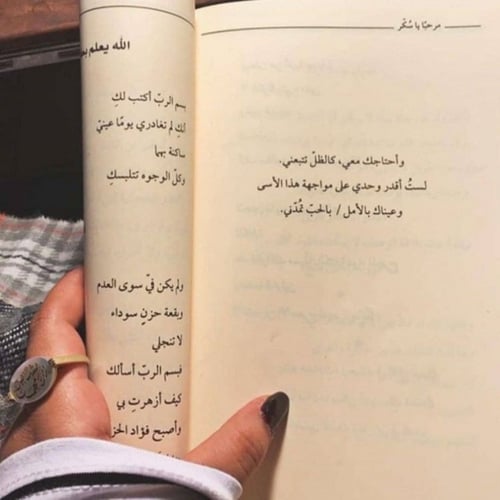 مرحبًا يا سُكّر
وأحتاجك معي، كالظلّ تتبعني.
لستُ أقدر وحدي على مواجهة هذا الأسى
وعيناك بالأمل / بالحبّ تمُدّني.
الله يعلم
بسم الربّ أكتب لكِ
أنكِ لم تغادري يومًا عينيّ
ساكنة بهما
وكلّ الوجوه تتلبسكِ
ولم يكن فيّ سوى العدم
وبقعة حزنٍ سوداء
لا تنجلي
فبسم الربّ أسألك
كيف أزهرتِ بي
وأصبح فؤاد